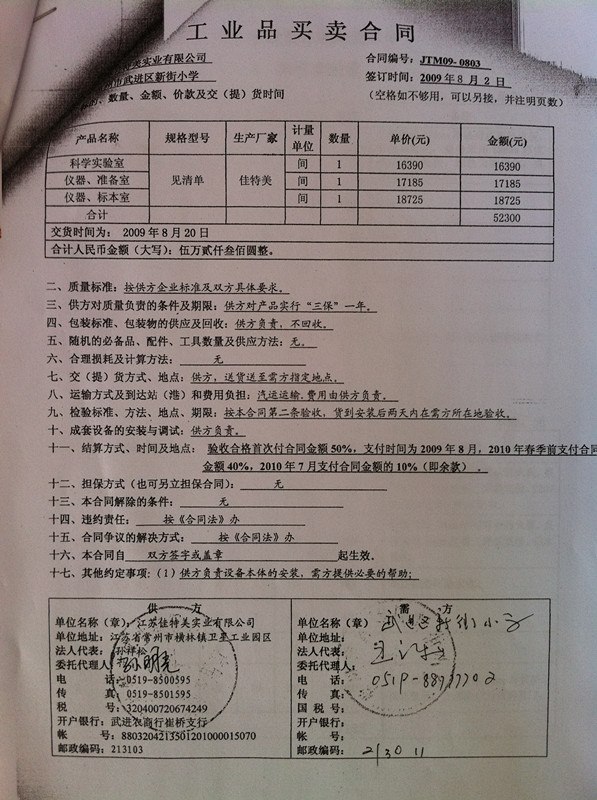 工业品买卖合同
美实业有限公司
合同编号：JTM09-0803
市武进区新街小学
签订时间：2009年8月2日
、数量、金额、价款及交（提）货时间
（空格如不够用，可以另接，并注明页数）
产品名称 规格型号 生产厂家 计量单位 数量 单价(元) 金额(元)
科学实验室 见清单 佳特美 间 1 16390 16390
仪器、准备室 间 1 17185 17185
仪器、标本室 间 1 18725 18725
合计 52300
交货时间为：2009年8月20日
合计人民币金额（大写）：伍万贰仟叁佰圆整。
二、质量标准：按供方企业标准及双方具体要求。
三、供方对质量负责的条件及期限：供方对产品实行“三保”一年。
四、包装标准、包装物的供应及回收：供方负责，不回收。
五、随机的必备品、配件、工具数量及供应方法：无。
六、合理损耗及计算方法：无
七、交（提）货方式、地点：供方，送货送至需方指定地点。
八、运输方式及到达站（港）和费用负担：汽运运输.费用由供方负责。
九、检验标准、方法、地点、期限：按本合同第二条验收，货到安装后两天内在需方所在地验收。
十、成套设备的安装与调试：供方负责。
十一、结算方式、时间及地点：验收合格首次付合同金额50%，支付时间为2009年8月，2010年春季前支付合同
金额40%，2010年7月支付合同金额的10%（即余款）。
十二、担保方式（也可另立担保合同）：无
十三、本合同解除的条件：无
十四、违约责任：按《合同法》办
十五、合同争议的解决方式：按《合同法》办
十六、本合同自双方签字或盖章起生效。
十七、其他约定事项：（1）供方负责设备本体的安装，需方提供必要的帮助；
供方
单位名称（章）：江苏佳特美实业有限公司
单位地址：江苏省常州市横林镇卫星工业园区
法人代表：孙祥松
委托代理人：孙明亮
电话：0519-8500595
传真：0519-8501595
税号：320400720674249
开户银行：武进农商行崔桥支行
帐号：8803204213501201000015070
邮政编码：213103
需方
单位名称（章）武进区新街小学
单位地址：
法人代表：
委托代理人：
电话：0519-88737702
传真：
国税号：
开户银行：
帐号：
邮政编码：213011